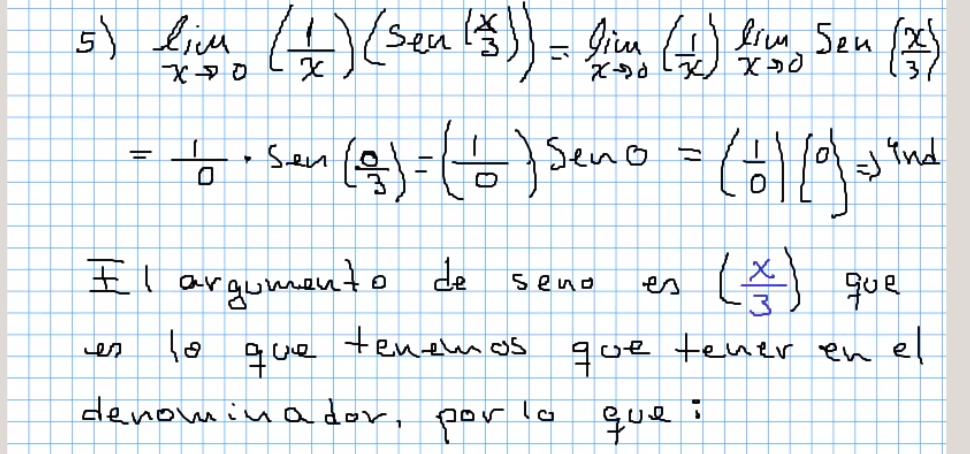 5) lim x→0 (1/x)(Sen(x/3)) = lim x→0 (1/x) lim x→0 Sen (x/3)
= 1/0 · Sen (0/3) = (1/0) Sen 0 = (1/0)(0) => ind
El argumento de seno es (x/3) que
es lo que tenemos que tener en el
denominador, por lo que: